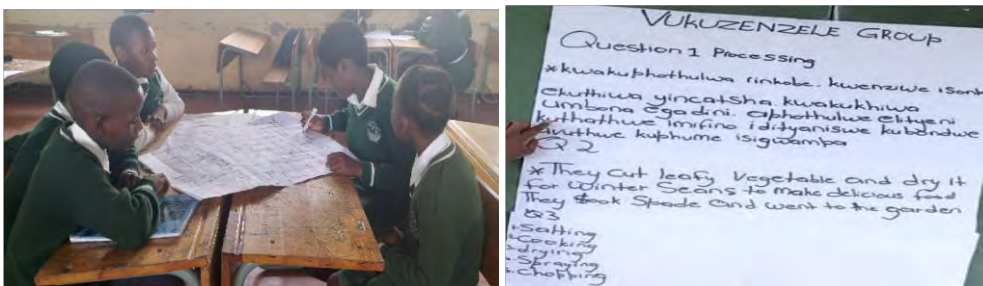 VUKUZENZELE GROUP
Question 1 Processing
*kwakuphothulwa iinkobe. kwenziwe isonk
ekuthiwa yincatsha kwakukhiwa
umbona egadini. aphothulwe elityeni
kuthathwe imifino idityaniswe kubondwe
ivuthwe kuphume isigwampa
Q2
*They cut leafy vegetable and dry it
for winter Seans to make delicious food
They took Spade and went to the garden
Q3
Salting
Cooking
drying
Spraying
Chopping